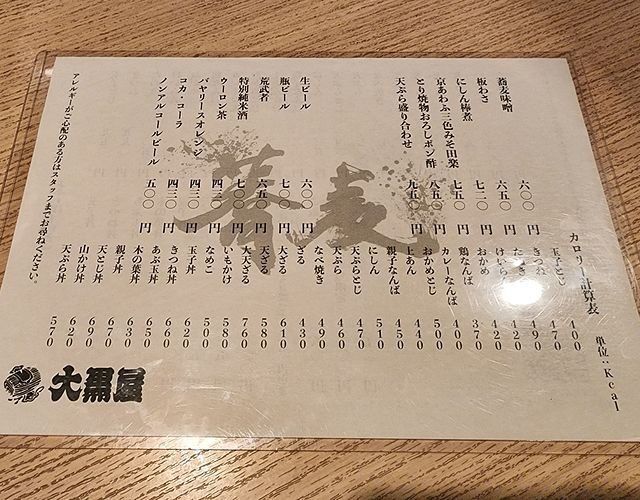 カロリー計算表
単位：Kcal
蕎麦味噌 六〇〇円
板わさ 六五〇円
にしん棒煮 七二〇円
京あわふ三色みそ田楽 七五〇円
とり焼物おろしポン酢 八五〇円
天ぷら盛り合わせ 九五〇円
生ビール 六〇〇円
瓶ビール 七〇〇円
荒武者 六五〇円
特別純米酒 七〇〇円
ウーロン茶 四三〇円
バヤリースオレンジ 四三〇円
コカ・コーラ 四三〇円
ノンアルコールビール 五〇〇円
玉子とじ 400
きつね 470
たぬき 490
けいらん 420
おかめ 420
鶏なんば 370
カレーなんば 400
おかめとじ 500
上あん 440
親子なんば 450
にしん 510
天ぷらとじ 470
天ぷら 460
なべ焼き 490
ざる 430
大ざる 610
天ざる 580
大天ざる 760
いもかけ 580
なめこ 500
玉子丼 620
きつね丼 660
あぶ玉丼 650
木の葉丼 630
親子丼 670
天とじ丼 690
山かけ丼 620
天ぷら丼 570
アレルギーがご心配のある方はスタッフまでお尋ねください。
蕎麦
大黒屋